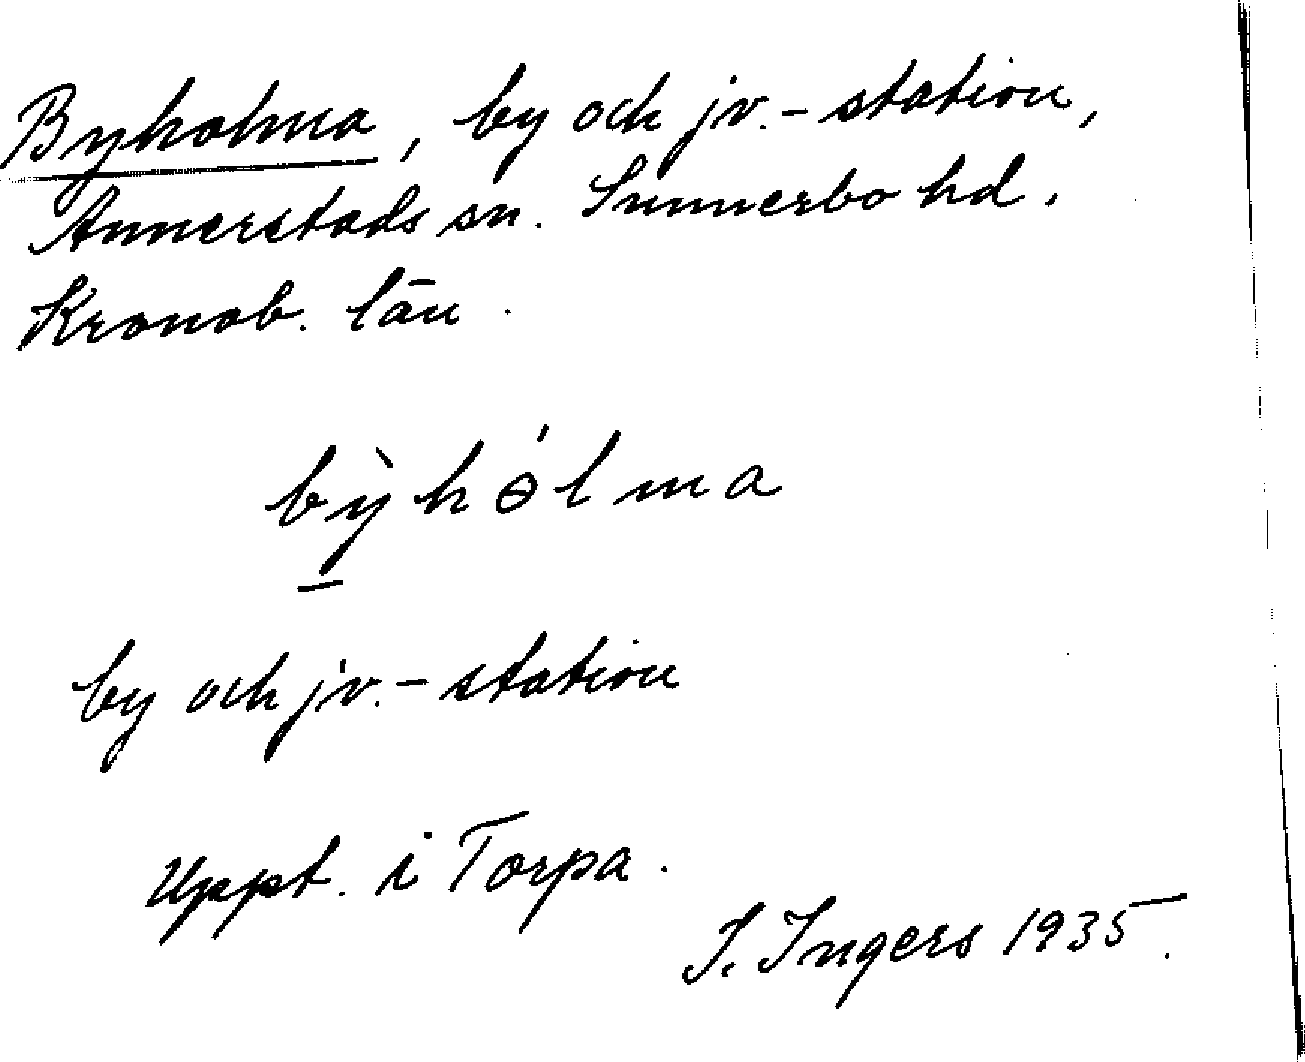 Byholma, by och jv.-station,
Annerstads sn. Sunnerbo hd.
Kronob. län.
bỳ̱hɵ́lma
by och jv.-station
Uppt. i Torpa.
I. Ingers 1935.